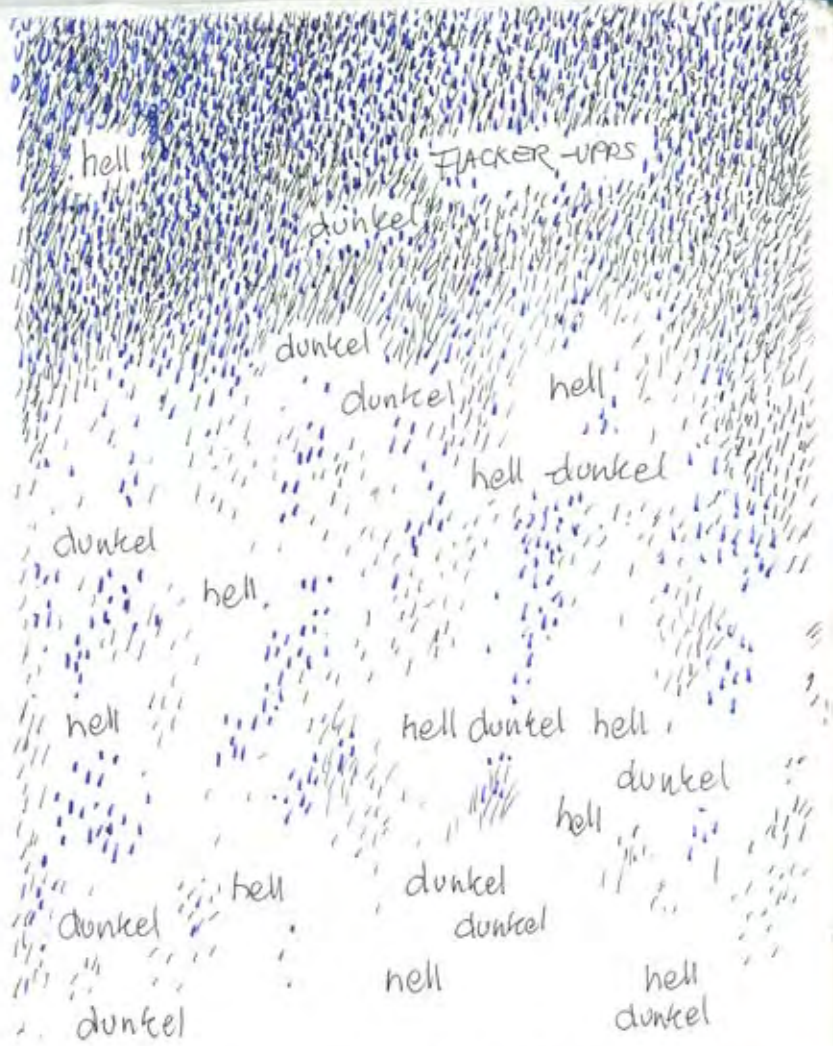 hell FLACKER-UPPS
dunkel
dunkel
dunkel hell
hell-dunkel
dunkel
hell
hell hell dunkel hell
dunkel
hell
hell dunkel
dunkel dunkel
hell hell
dunkel dunkel